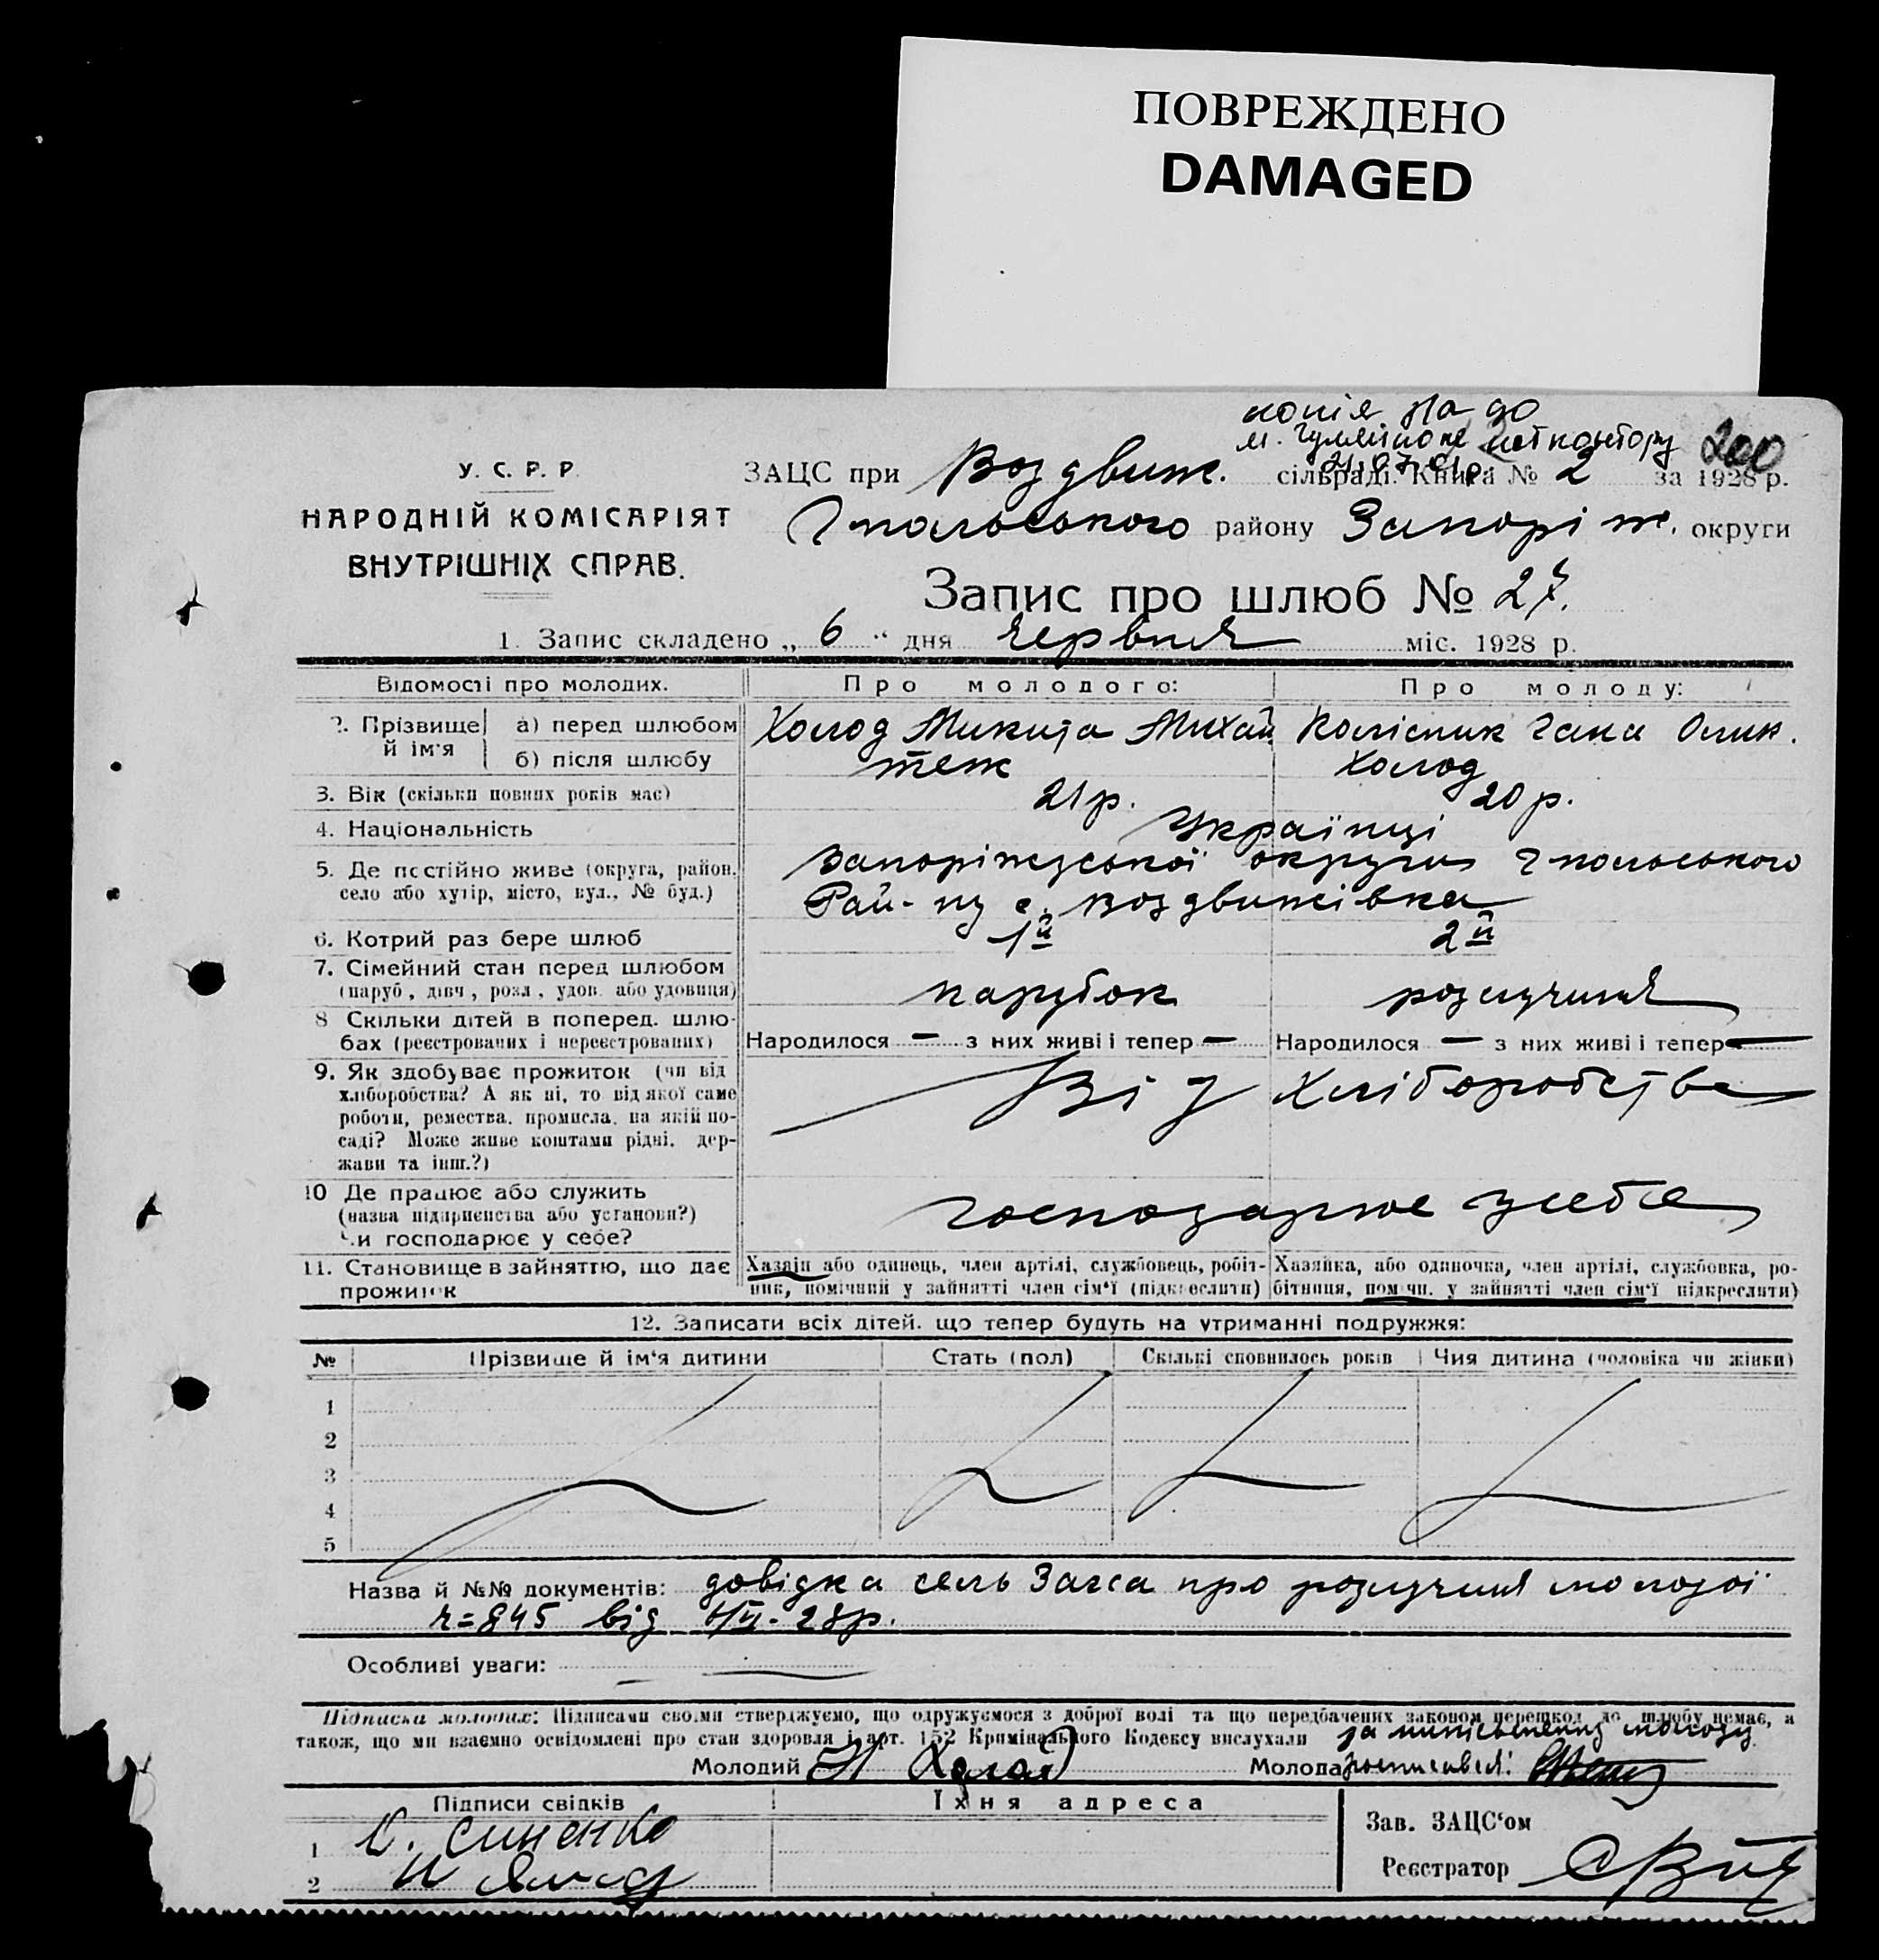 ПОВРЕЖДЕНО
DAMAGED
копія на до
м. Гуляйполе
200
У. С. Р. Р.
НАРОДНІЙ КОМІСАРІЯТ
ВНУТРІШНІХ СПРАВ.
ЗАЦС при Воздвиж. сільраді. Книга № 2 за 1928 р.
Гпольського району Запоріж. округи
Запис про шлюб № 27.
1. Запис складено „ 6 “ дня червня міс. 1928 р.
Відомості про молодих. Про молодого: Про молоду:
2. Прізвище й ім'я а) перед шлюбом Холод Микита Михай Колісник Гана Олик.
б) після шлюбу теж Холод
3. Вік (скільки повних років має) 21 р. 20 р.
4. Національність Українці
5. Де постійно живе (округа, район, Запоріжської округи Гпольського
село або хутір, місто, вул., № буд.) Рай-ну с. Воздвижівка
6. Котрий раз бере шлюб 1й 2й
7. Сімейний стан перед шлюбом
(паруб, дівч, розл, удов. або удовиця) парубок розлучиня
8 Скільки дітей в поперед. шлю-
бах (реєстрованих і нереєстрованих) Народилося — з них живі і тепер — Народилося — з них живі і тепер —
9. Як здобуває прожиток (чи від Від Хліборобства
хліборобства? А як ні, то від якої саме
роботи, ремества, промисла, на якій по-
саді? Може живе коштами рідні, дер-
жави та інш.?)
10 Де працює або служить
(назва підприємства або установи?) господарює усебе
Чи господарює у себе?
11. Становище в зайняттю, що дає Хазяїн або одинець, член артілі, службовець, робіт- Хазяйка, або одиночка, член артілі, службовка, ро-
прожиток ник, помічний у зайнятті член сім'ї (підкреслити) бітниця, помічн. у зайнятті член сім'ї підкреслити)
12. Записати всіх дітей, що тепер будуть на утриманні подружжя:
№ Прізвище й ім'я дитини Стать (пол) Скількі сповнилось років Чия дитина (чоловіка чи жінки)
1
2
3
4
5
Назва й №№ документів: довідка сель Загса про розлучиня молодої
ч=845 від 28р.
Особливі уваги: —
Підписка молодих: Підписами своїми стверджуємо, що одружуємося з доброї волі та що передбачених законом перешкод до шлюбу немає, а
також, що ми взаємно освідомлені про стан здоровля і арт. 152 Кримінального Кодексу вислухали за неписьменну молоду
Молодий Холод Молода росписався:
Підписи свідків Їхня адреса
Зав. ЗАЦС'ом
1 Синенко
Реєстратор
2